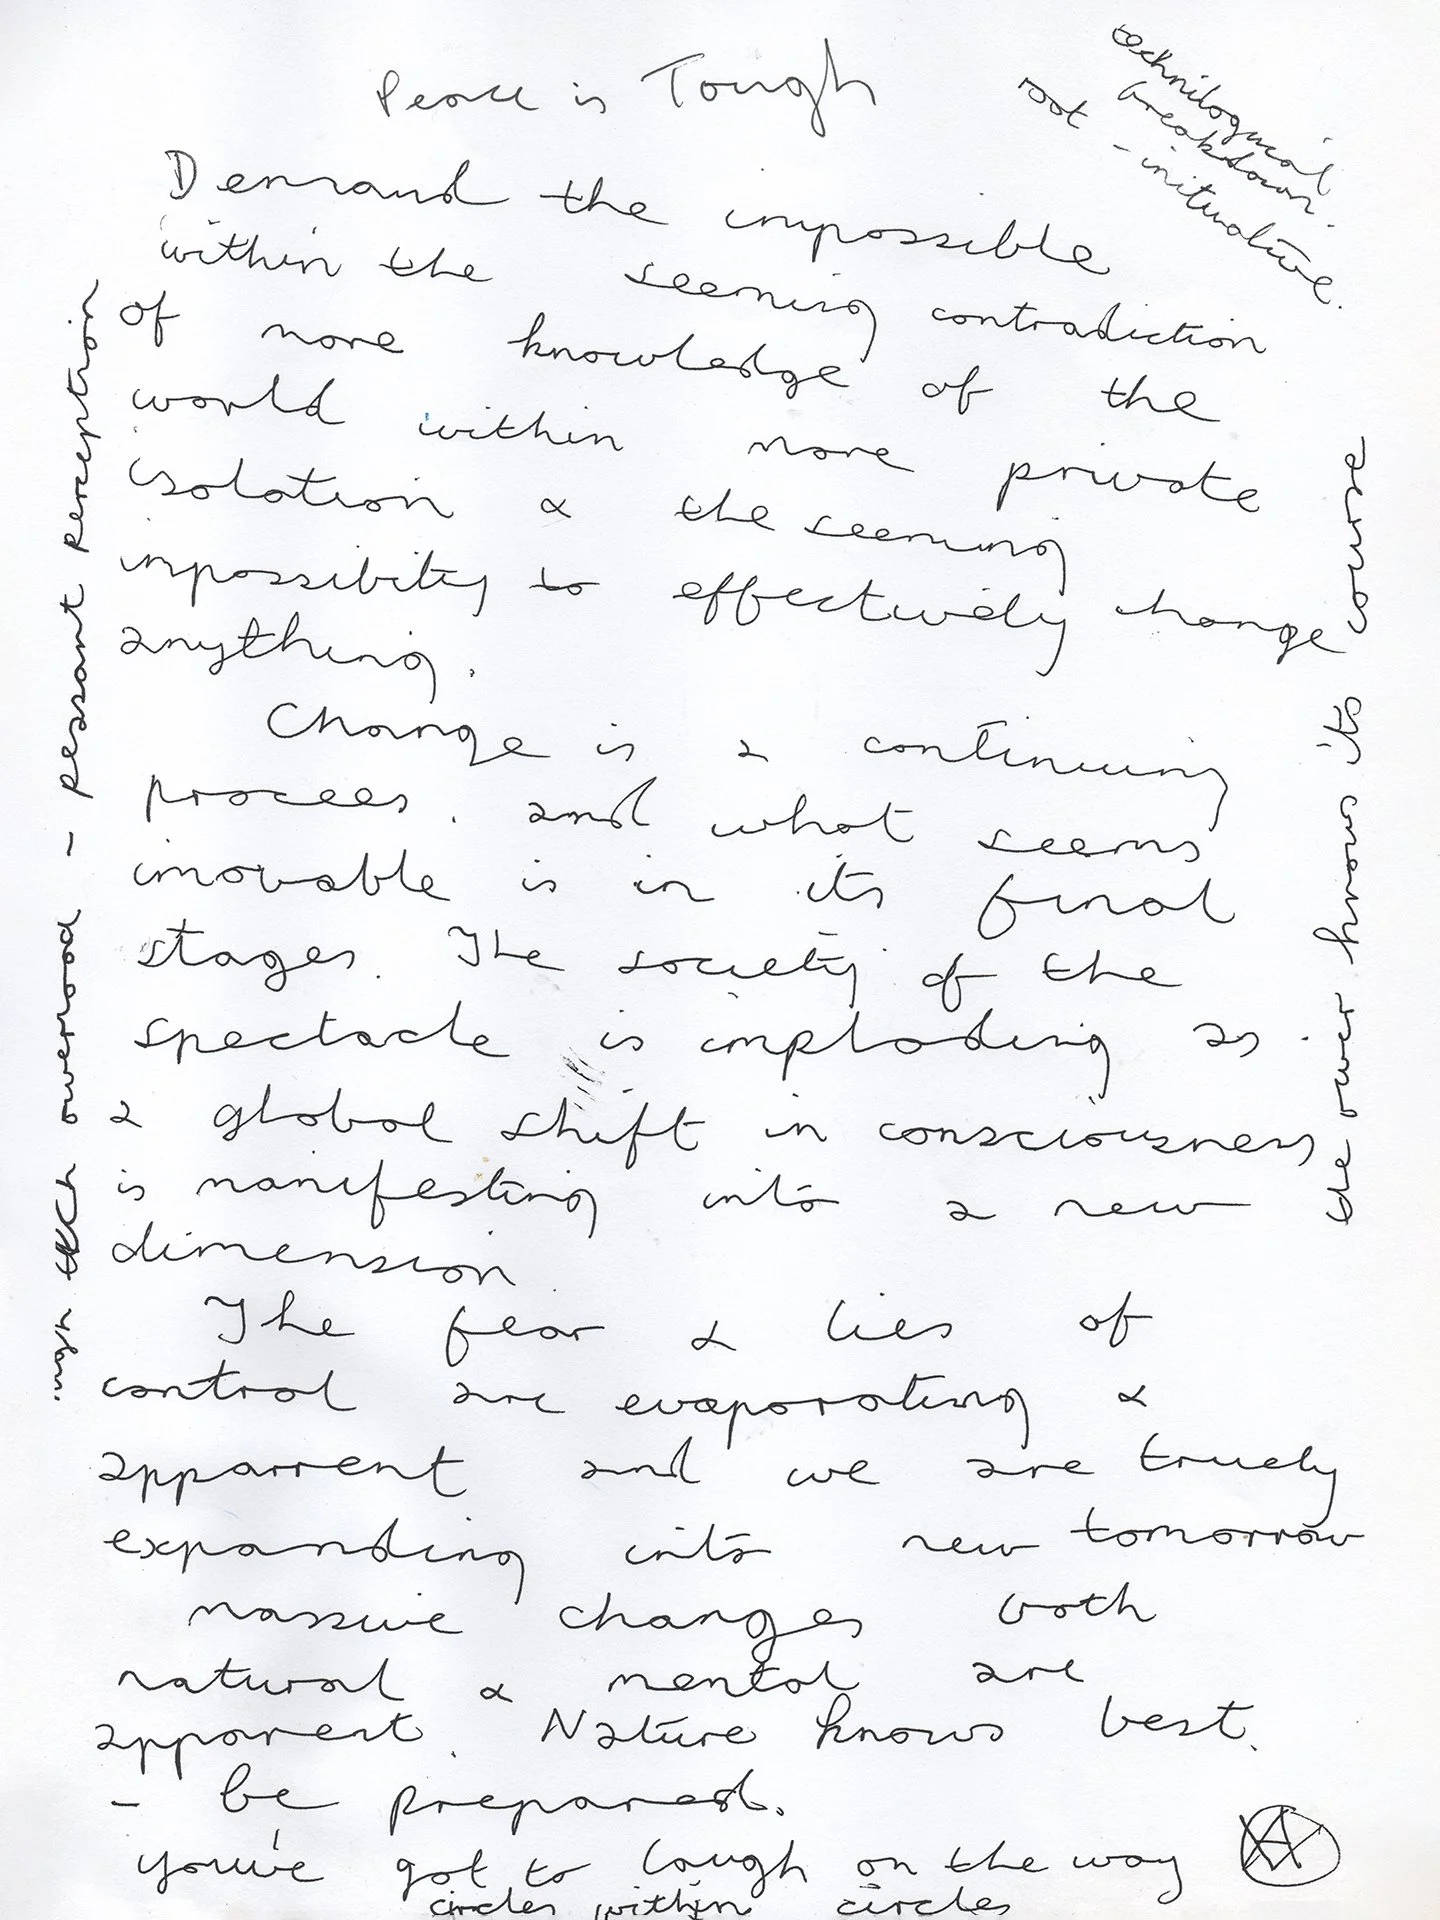 Peace is Tough
technilogical
breakdown.
root - inituative.
Demand the impossible
within the seeming contradiction
of more knowledge of the
world within more private
isolation & the seeming
impossibility to effectively change
anything.
Change is a continuing
procees. and what seems
imovable is in its final
stages. The society of the
spectacle is imploding as
a global shift in consciousness
is manifesting into a new
dimension
The fear & lies of
control are evaporating &
apparrent and we are truely
expanding into new tomorrow
massive changes both
natural & mental are
apparent. Nature knows best.
- be prepared.
you've got to laugh on the way
circles within circles
high tech - peasant perception
knows its course